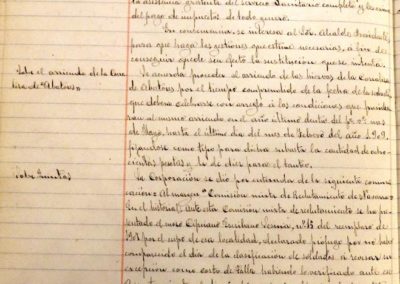 la asistencia gratuita del servicio Sanitario completo y la exención
del pago de impuestos de todo genero.
En consecuencia, se interesa al Sr. Alcalde Presidente
para que haga las gestiones que estime necesarias, a fin de
conseguir quede sin efecto la sustitución que se intenta.
Sobre el arriendo de la Cantera de Abatoro
Se acuerda proceder al arriendo de las hierbas de la
de por el tiempo comprendido de la fecha de la subasta
que deberá celebrarse con arreglo á las condiciones que
ron al mismo arriendo en el año último dentro del pr. mes
de Mayo, hasta el último dia del mes de Febrero del año 1.909,
fijandose como tipo para dicha subasta la cantidad de
cientas pesetas y la de diez para el tanteo.
Sobre Quintas
La Corporación se dio por enterada de la siguiente comuni-
cación: Al margen "Comisión mixta de Reclutamiento de Navarra
En el historial: Ante esta Comisión mixta de reclutamiento se ha pre-
sentado el mozo Cipriano nº 15 del reemplazo de
por el cupo de esa localidad, declarado prófugo por no haber
comparecido el dia de la clasificación de soldados a revisar su
excepción como corto de talla habiendo lo verificado ante esta